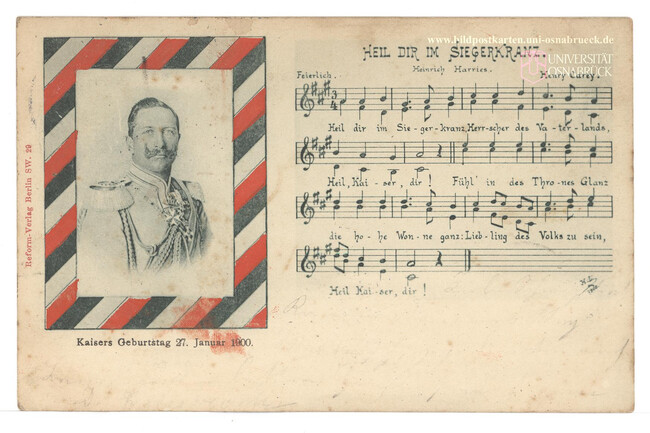 www.bildpostkarten.uni-osnabrueck.de
UNIVERSITÄT
OSNABRÜCK
HEIL DIR IM SIEGERKRANZ.
Heinrich Harries.
Feierlich.
Henry Carey.
3
4
Heil dir im Sie-ger-kranz, Herr-scher des Va-ter-lands,
Heil, Kai-ser, dir! Fühl' in des Thro-nes Glanz
die ho-he Won-ne ganz: Lieb-ling des Volks zu sein,
Heil Kai-ser, dir!
Reform-Verlag Berlin SW. 29
Kaisers Geburtstag 27. Januar 1900.